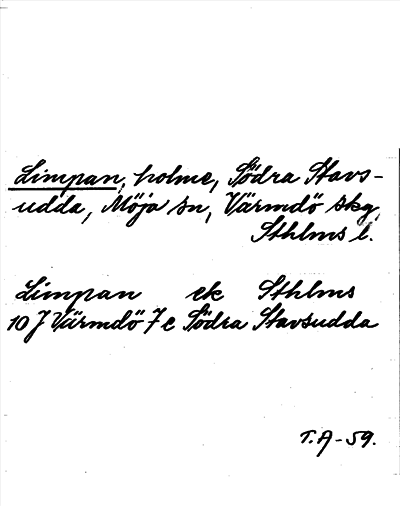 Limpan, holme, Södra Stavs-
udda, Möja sn, Värmdö skg,
Sthlms l.
Limpan ek Sthlms
10 J Värmdö 7 c Södra Stavsudda
T.A-59.